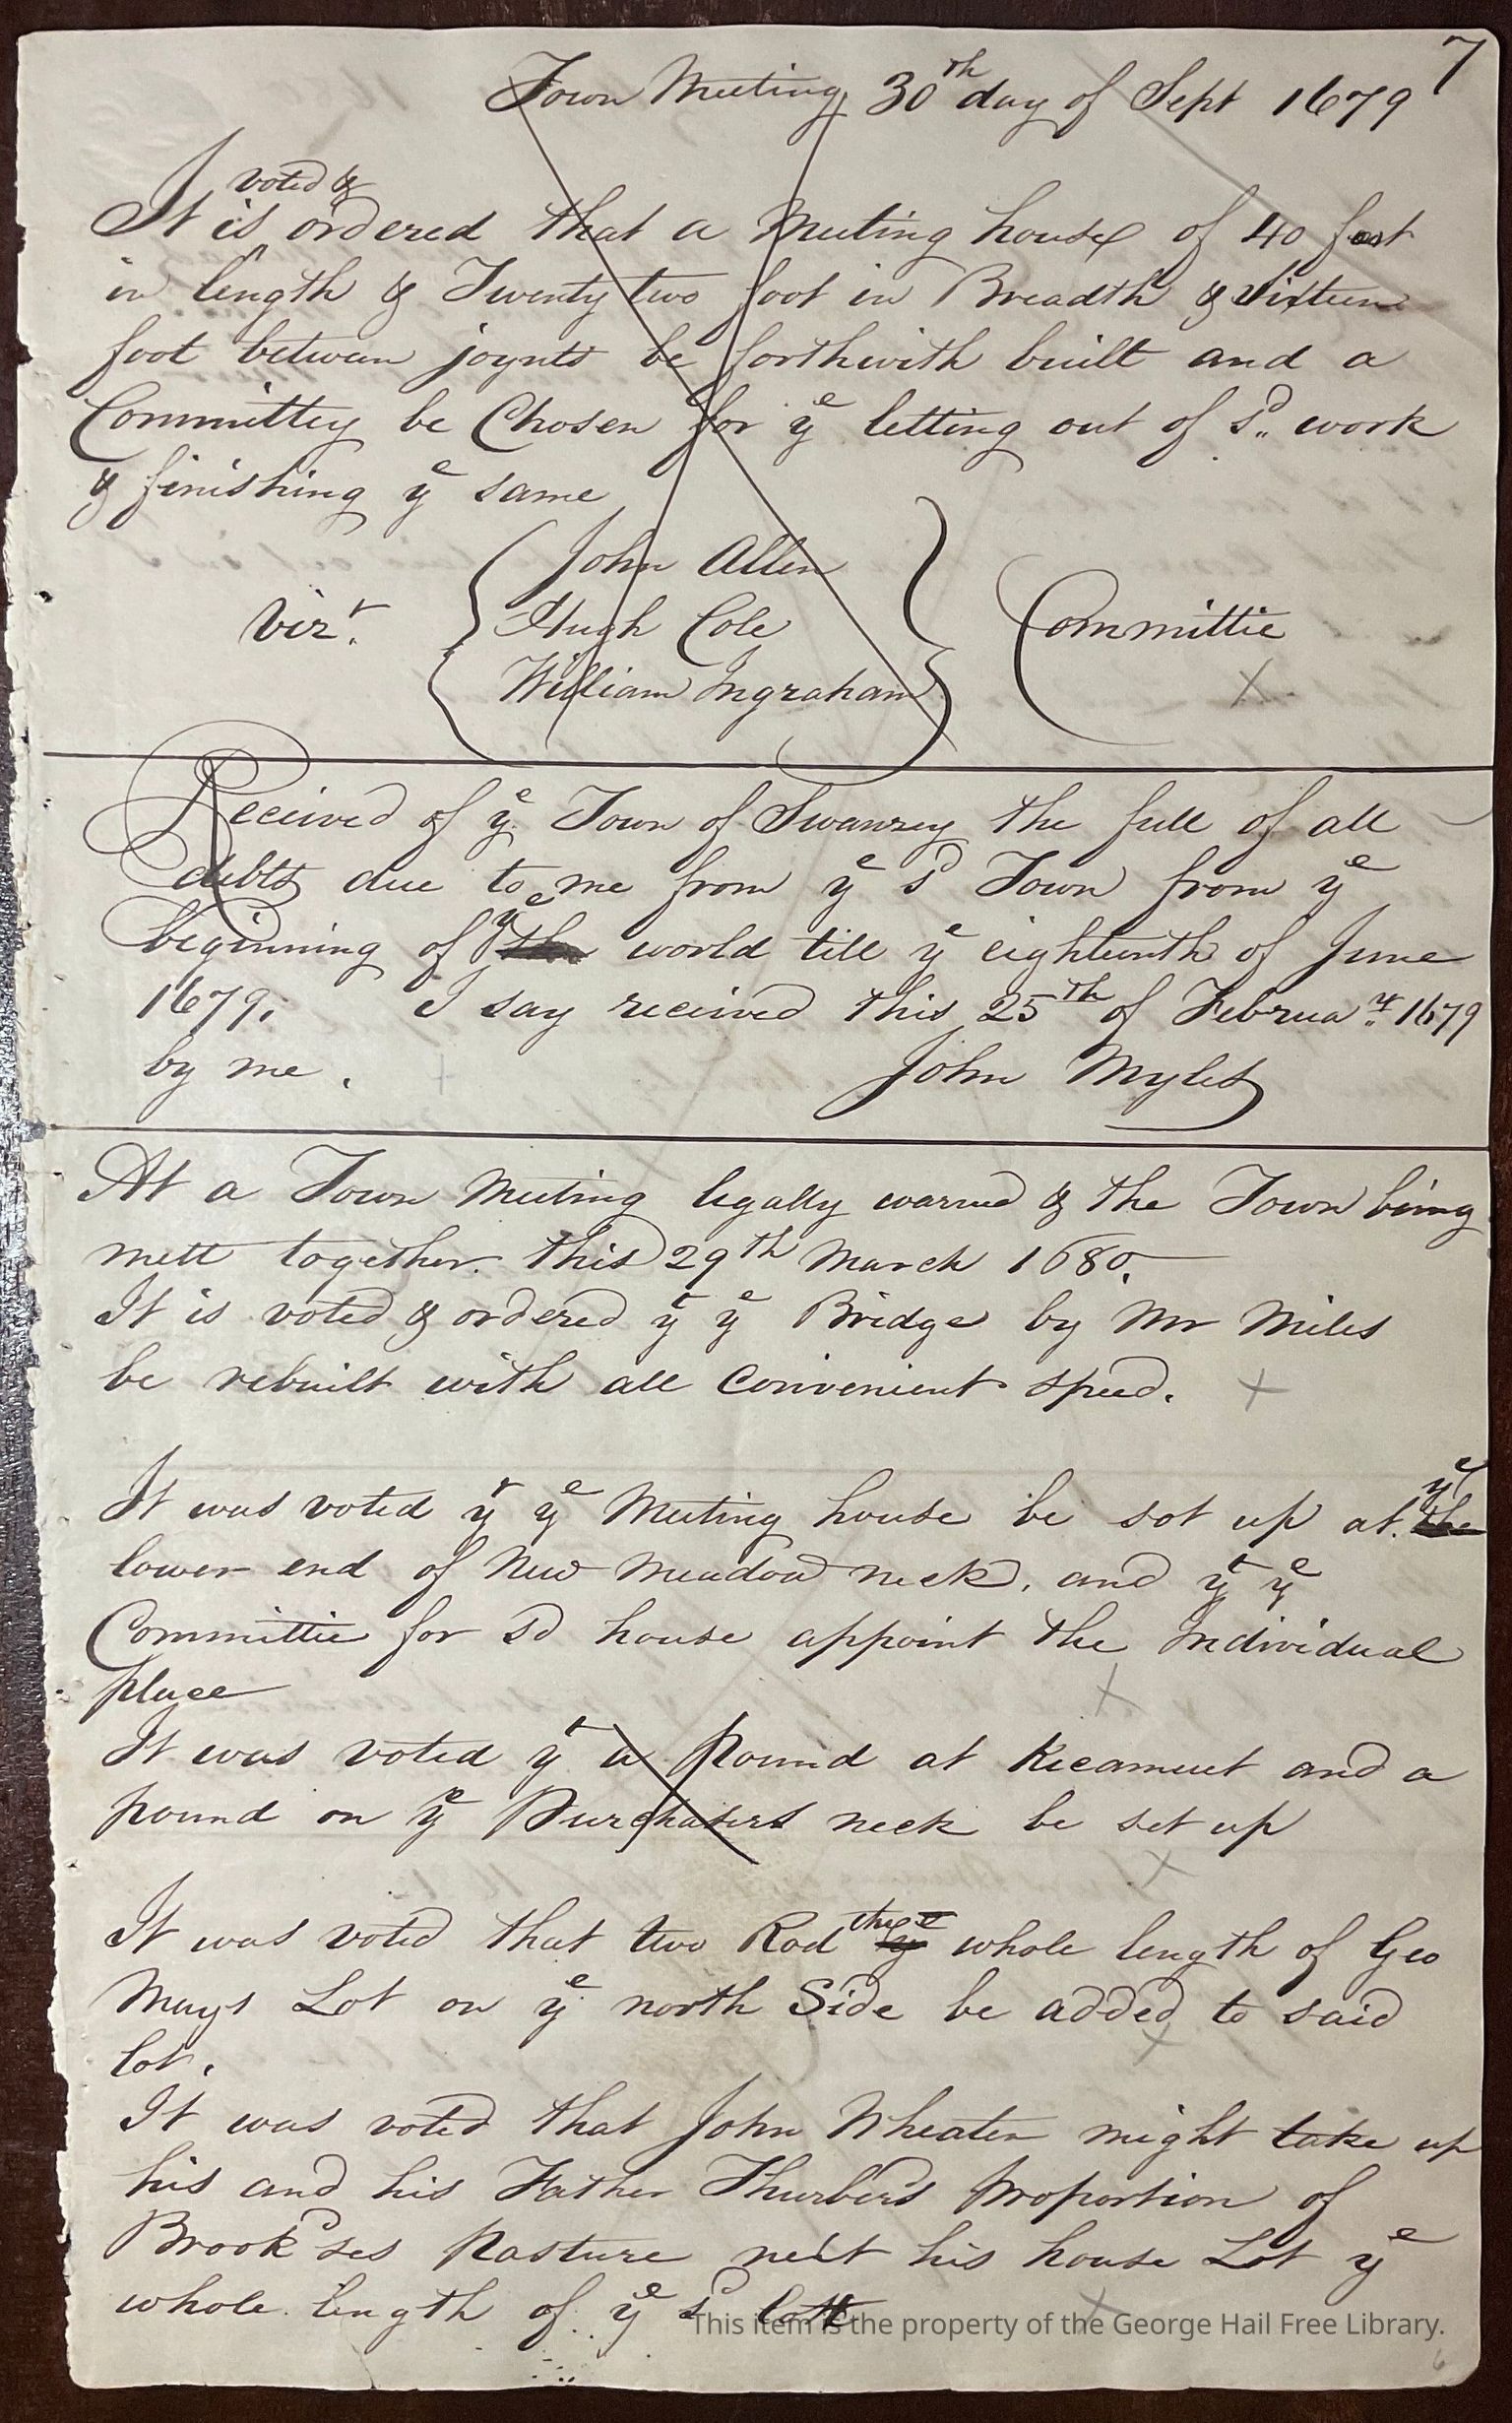 7
Town Meeting 30th day of Sept 1679
voted &
It is ordered that a Meeting house of 40 foot
in length & Twenty two foot in Breadth & Sixteen
foot between joynts be forthwith built and a
Committey be Chosen for ye letting out of sd work
& finishing ye same
John Allen
Vizt. Hugh Cole Committie
William Ingraham
Received of ye Town of Swanzey the full of all
debts due to me from ye sd Town from ye
beginning of ye world till ye eighteenth of June
1679. I say received this 25th of Februay 1679
by me. John Myles
At a Town Meeting legally warned & the Town being
mett together this 29th March 1680.
It is voted & ordered yt ye Bridge by Mr Miles
be rebuilt with all convenient speed.
It was voted yt ye Meeting house be sot up at ye the
lower end of New Meadow neck, and yt ye
Committie for sd house appoint the Individual
place
It was voted yt a Pound at Kicamuet and a
pound on ye Purchasers neck be set up
It was voted that two Rod the ye whole length of Geo
Mays Lot on ye north Side be added to said
lot.
It was voted that John Wheaten might take up
his and his Father Thurbers Proportion of
Brooks'ses Pasture next his house Lot ye
whole length of ye sd lott
This item is the property of the George Hail Free Library.
6